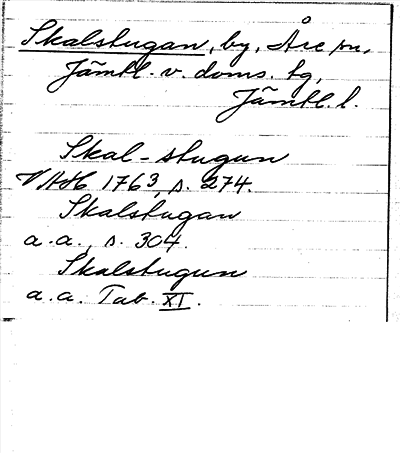 Skalstugan, by, Åre sn,
Jämtl. v. doms. tg,
Jämtl. l.
Skal-stugun
VAH 1763, s. 274.
Skalstugan
a.a., s. 304.
Skalstugun
a.a. Tab. XI.